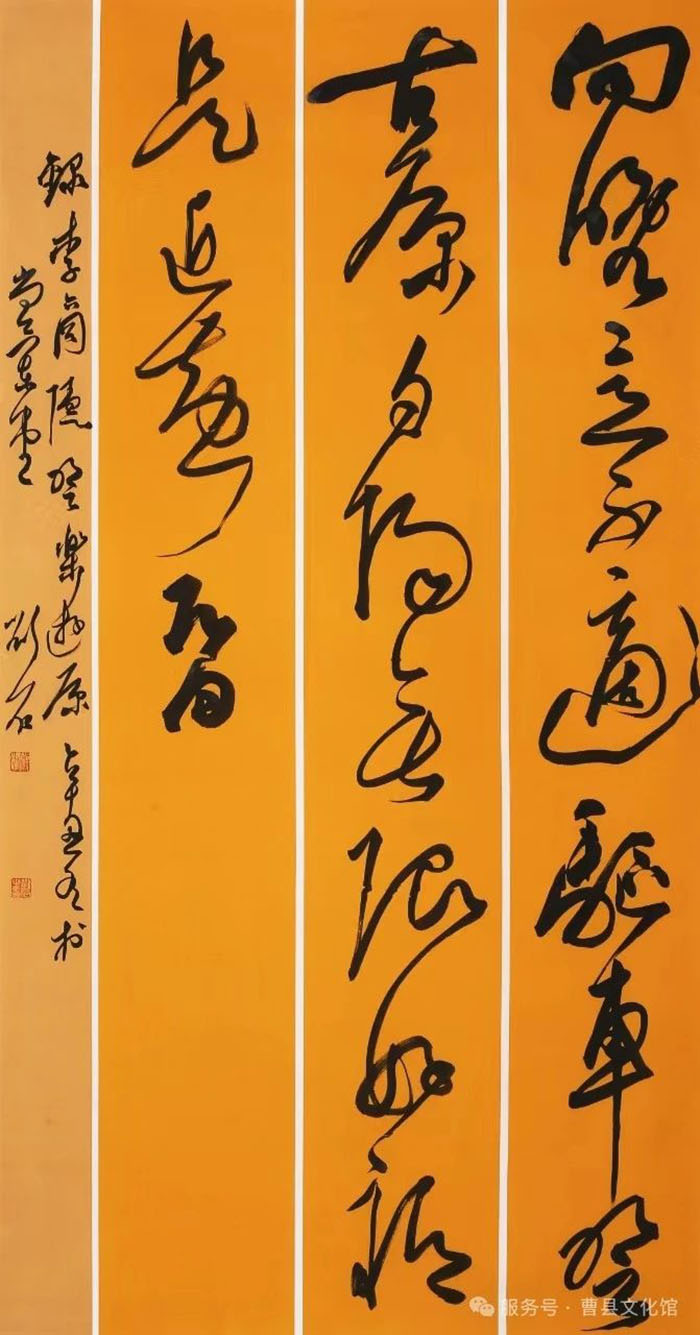 向晚意不適驅車登
古原夕陽無限好祇
是近黃昏
錄李商隱登樂遊原 辛丑書
服务号 · 曹县文化馆